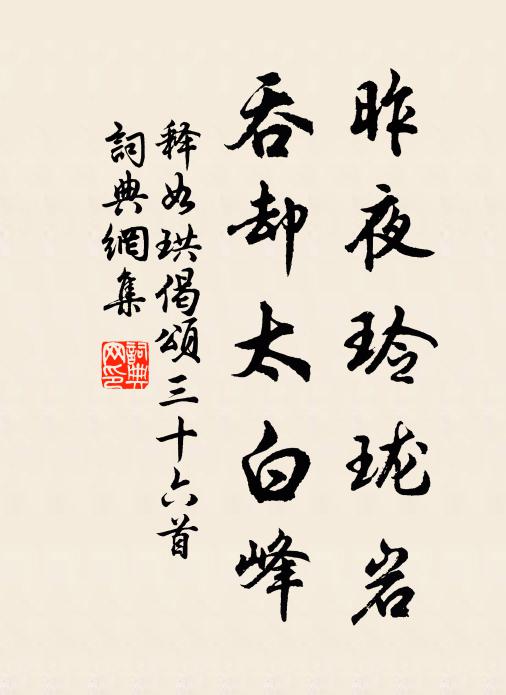 昨夜玲珑岩
吞却太白峰
释如珙偈颂三十六首
詞典網集
詞典网印